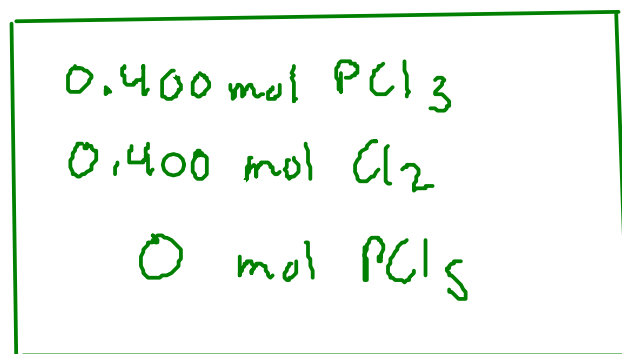 0.400 mol PCl₃
0.400 mol Cl₂
0 mol PCl₅